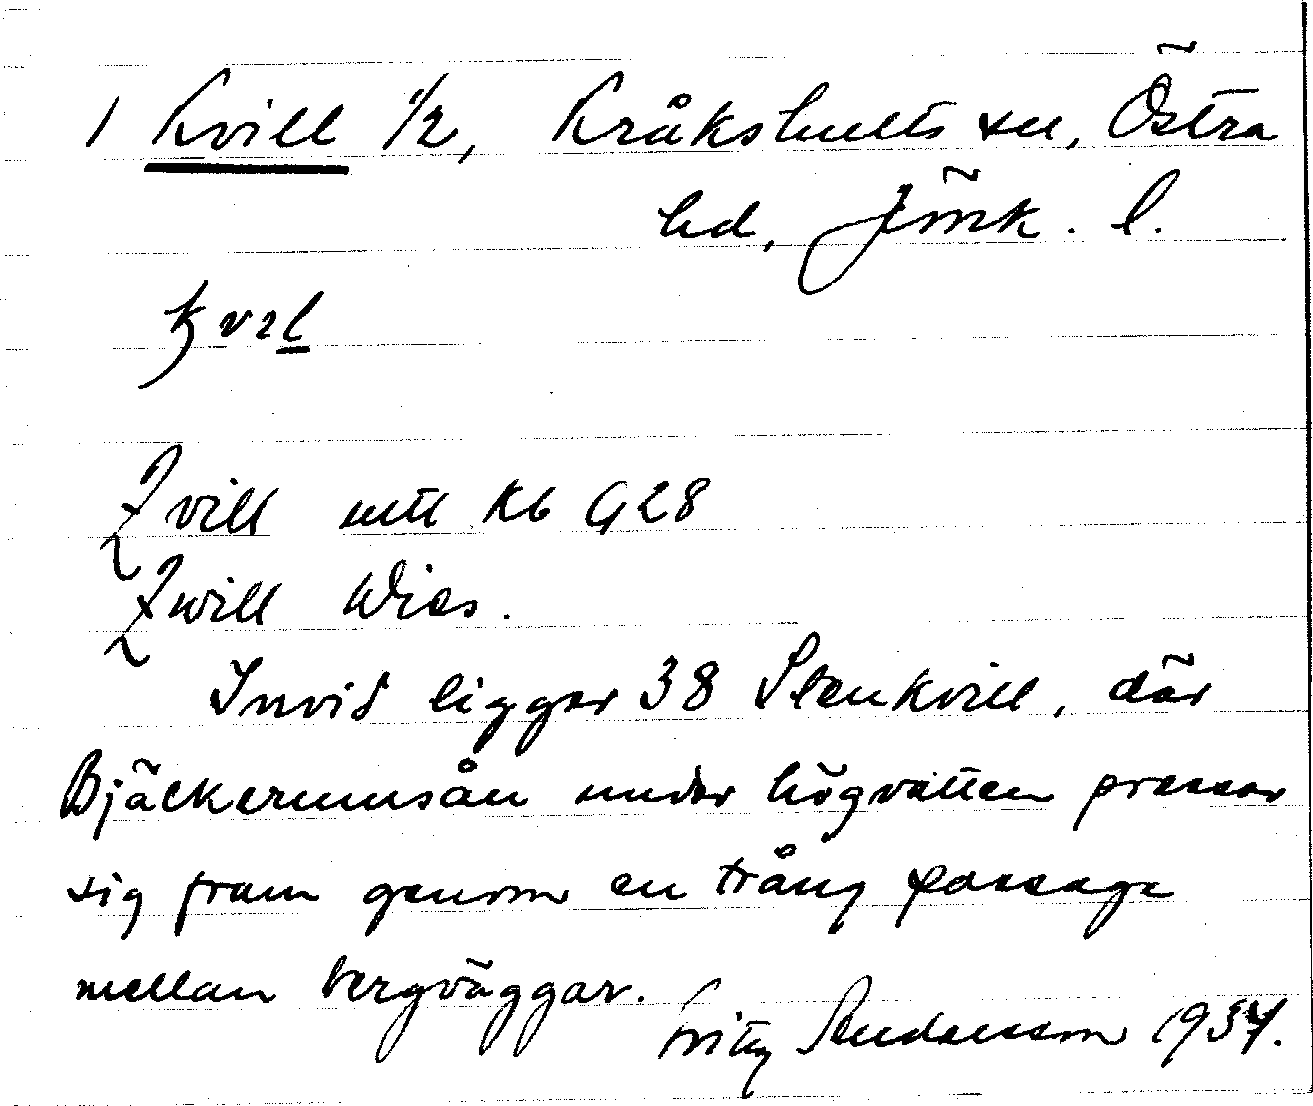 1 Kvill 1/2, Kråkshults sn, Östra
hd, Jönk. l.
kvɪl
Qvill mtl Kb G28
Qwill Wies.
Invid ligger 38 Stenkvill, där
Bjäckerumsån under högvatten pressar
sig fram genom en trång passage
mellan bergväggar.
Fritz Andersson 1934.